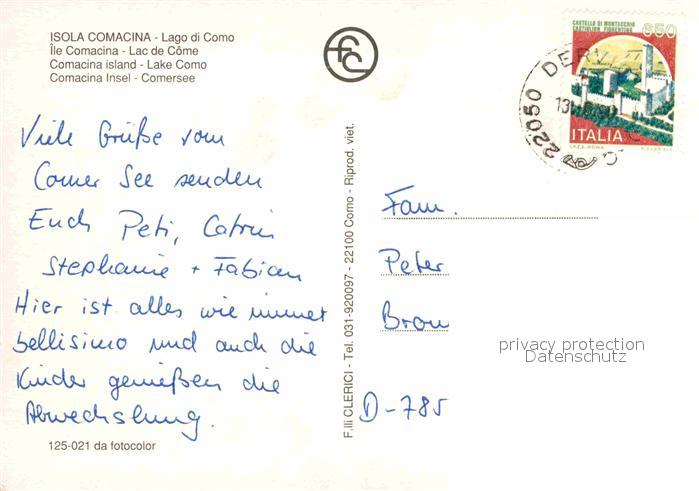 ISOLA COMACINA - Lago di Como
Île Comacina - Lac de Côme
Comacina island - Lake Como
Comacina Insel - Comersee
Viele Grüße vom
Comer See senden
Euch Peti, Catrin
Stephanie + Fabian
Hier ist alles wie immer
bellisimo und auch die
Kinder genießen die
Abwechslung.
125-021 da fotocolor
F.lli CLERICI - Tel. 031-920097 - 22100 Como - Riprod. viet.
CASTELLO DI MONTECCHIO
CASTIGLION FIORENTINO
650
ITALIA
22050 DERV
Fam.
Peter
Brow
D-785
privacy protection
Datenschutz